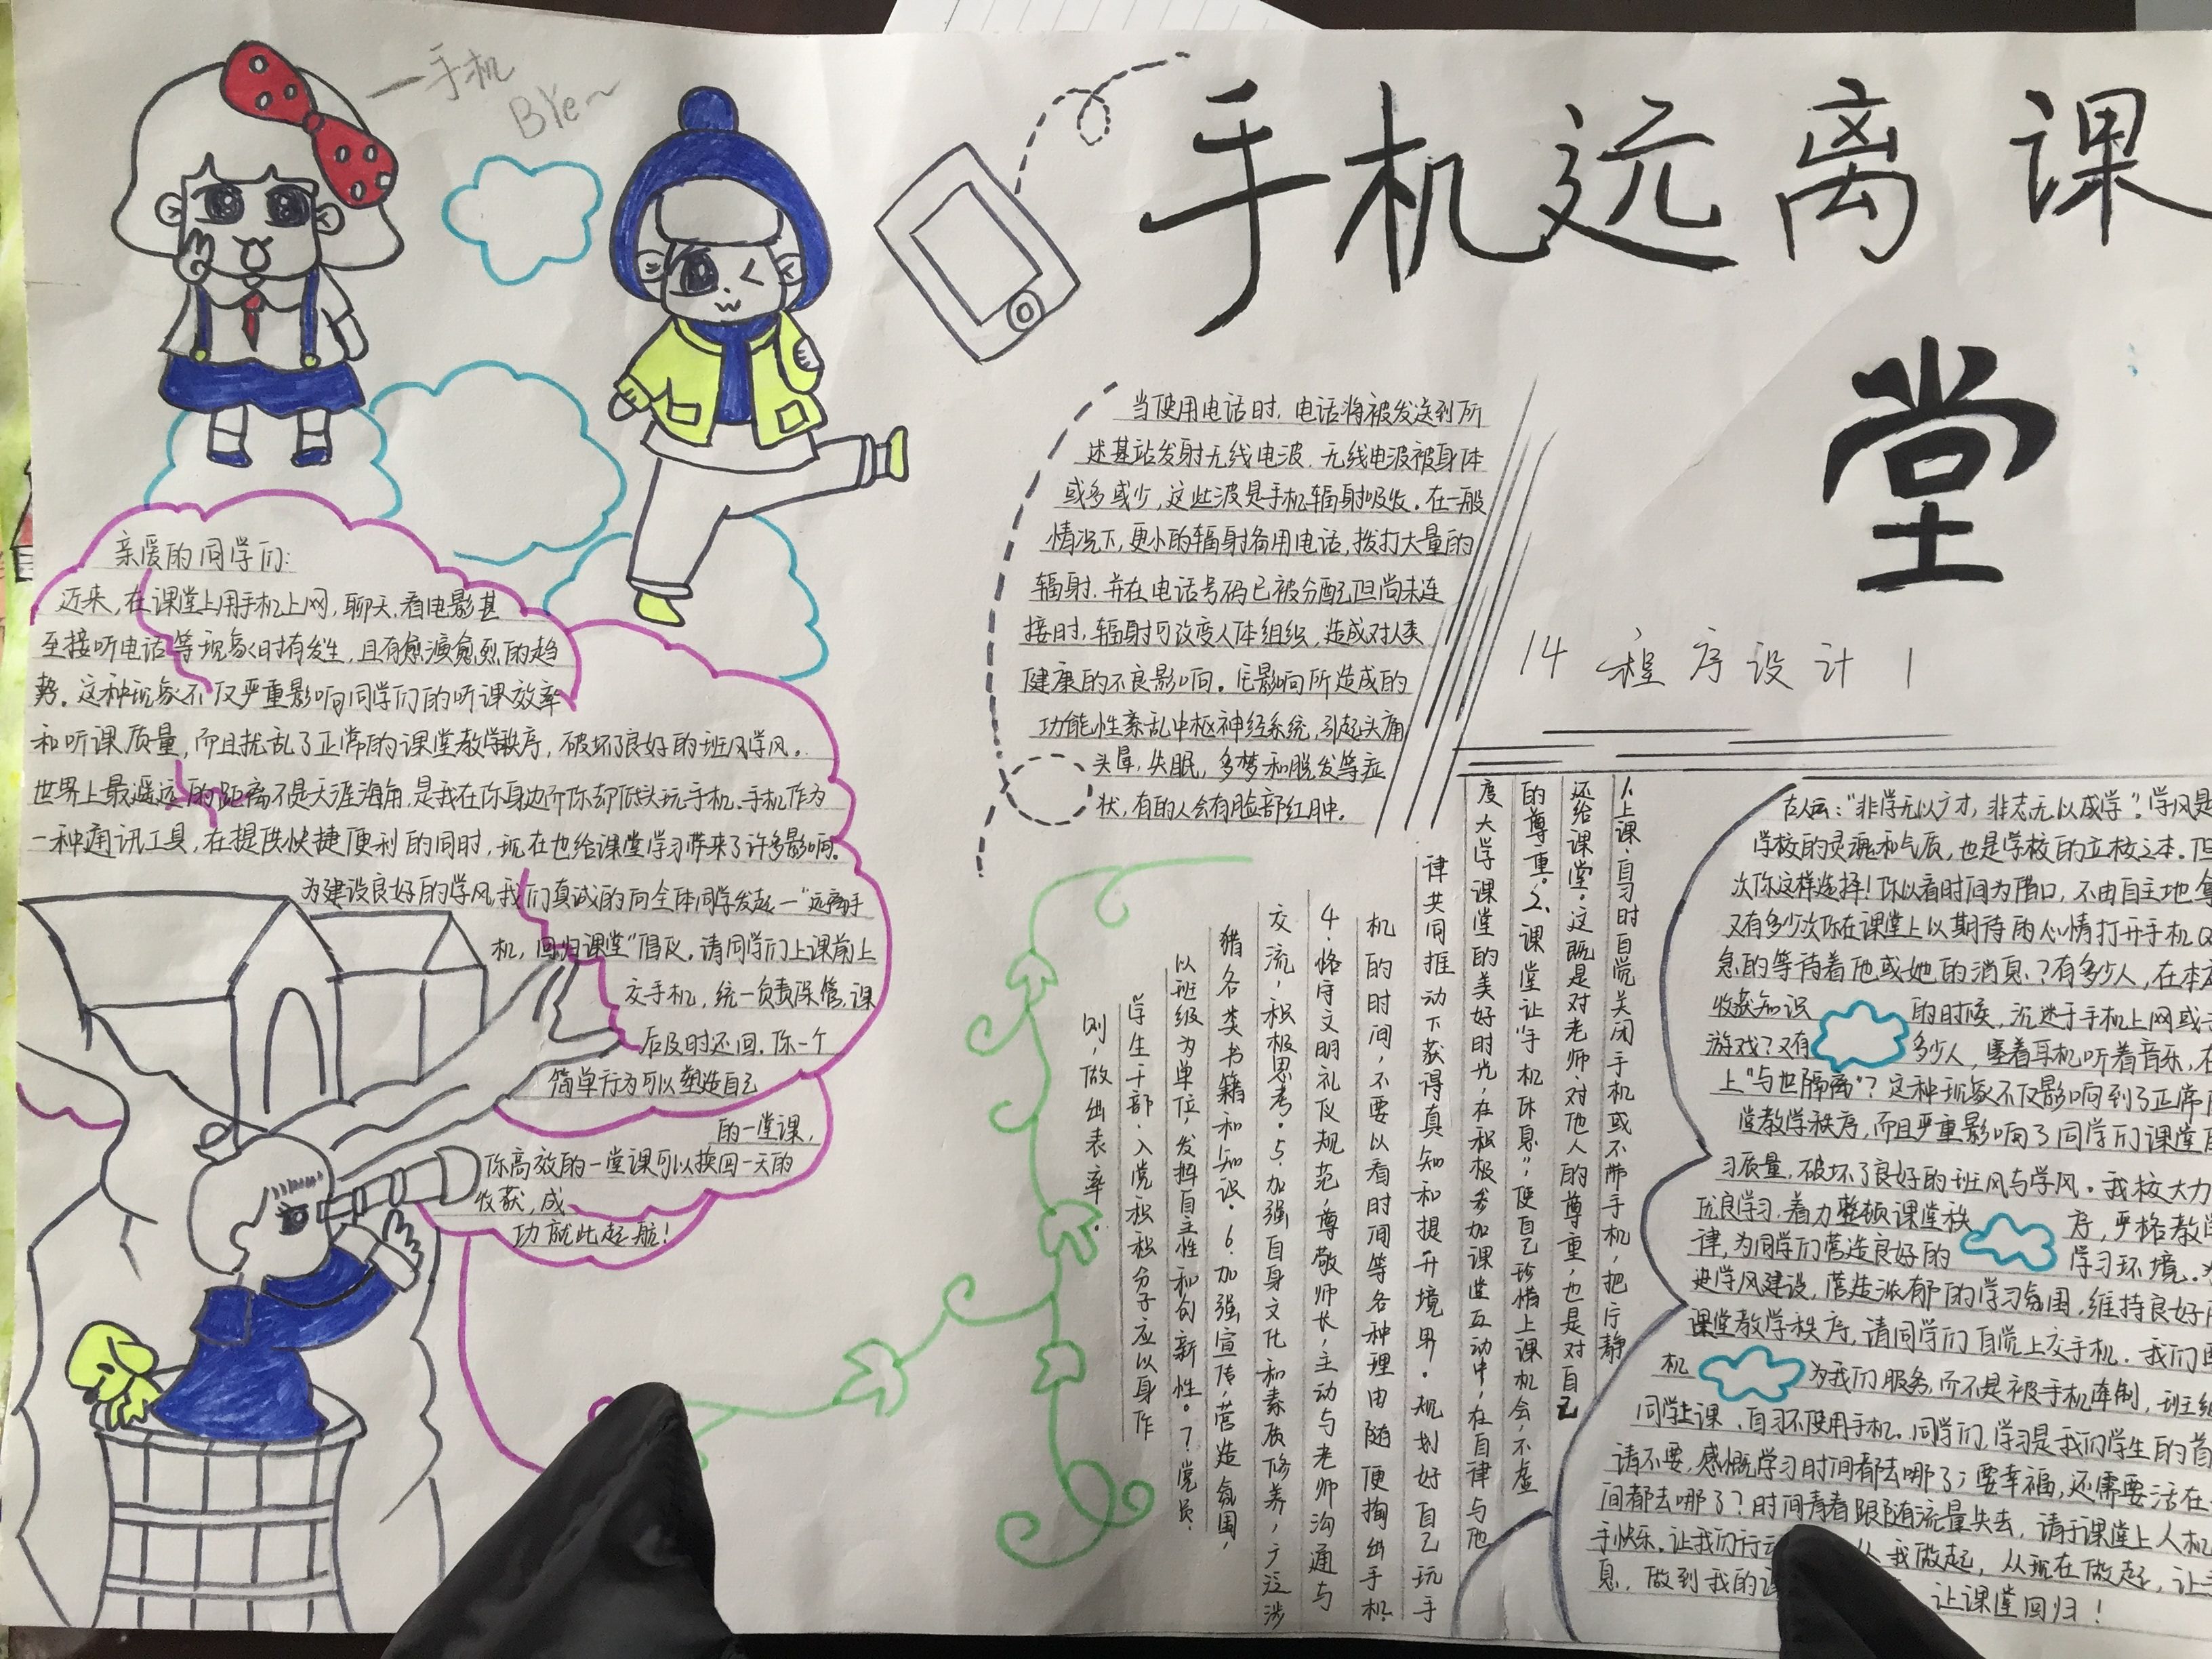 手机远离课
堂
14 程序设计 1
一手机
BYe~
亲爱的同学们:
近来,在课堂上用手机上网,聊天,看电影甚
至接听电话等现象时有发生,且有愈演愈烈的趋
势。这种现象不仅严重影响同学们的听课效率
和听课质量,而且扰乱了正常的课堂教学秩序,破坏了良好的班风学风。
世界上最遥远的距离不是天涯海角,是我在你身边而你却低头玩手机、手机作为
一种通讯工具,在提供快捷便利的同时,现在也给课堂学习带来了许多影响。
为建设良好的学风,我们真诚的向全体同学发起一"远离手
机,回归课堂"倡仪,请同学们上课前上
交手机,统一负责保管,课
后及时还回.你一个
简单行为可以塑造自己
的一堂课,
你高效的一堂课可以换回一天的
收获,成
功就此起航!
当使用电话时,电话将被发送到所
述基站发射无线电波.无线电波被身体
或多或少,这些波是手机辐射吸收。在一般
情况下,更小的辐射备用电话,拨打大量的
辐射.并在电话号码已被分配但尚未连
接时,辐射可改变人体组织,造成对人类
健康的不良影响。它影响所造成的
功能性紊乱中枢神经系统,引起头痛
头晕,失眠,多梦和脱发等症
状,有的人会有脸部红肿。
1、上课、自习时自觉关闭手机或不带手机,把宁静
还给课堂。这既是对老师、对他人的尊重,也是对自己
的尊重。2、课堂让"手机休息",使自己珍惜上课机会,不虚
度大学课堂的美好时光,在积极参加课堂互动中,在自律与他
律共同推动下获得真知和提升境界。规划好自己玩手
机的时间,不要以看时间等各种理由随便掏出手机.
4.恪守文明礼仪规范,尊敬师长,主动与老师沟通与
交流,积极思考。5.加强自身文化和素质修养,广泛涉
猎各类书籍和知识。6.加强宣传,营造氛围,
以班级为单位,发挥自主性和创新性。7党员、
学生干部、入党积积分子应以身作
则,做出表率.
古人云:"非学无以广才,非志无以成学"?学风是
学校的灵魂和气质,也是学校的立校之本.但
次你这样选择!你以看时间为借口,不由自主地拿
又有多少次你在课堂上以期待的心情打开手机Q
急的等待着他或她的消息?有多少人,在本
收获知识的时候,沉迷于手机上网或
游戏?又有多少人,塞着耳机听着音乐,在
上"与世隔离"?这种现象不仅影响到了正常
堂教学秩序,而且严重影响了同学们课堂
习质量,破坏了良好的班风与学风。我校大力
优良学习,着力整顿课堂秩序,严格教学
律,为同学们营造良好的学习环境.为
进学风建设,营造浓郁的学习氛围,维持良好
课堂教学秩序,请同学们自觉上交手机.我们要
机为我们服务,而不是被手机牵制,班级
同学上课、自习不使用手机。同学们,学习是我们学生的首
请不要,感慨学习时间都去哪了;要幸福,还需要活在
间都去哪了?时间青春跟随流量失去,请于课堂上人机
手快乐.让我们行 从我做起,从现在做起,让
息,做到我的 让课堂回归!